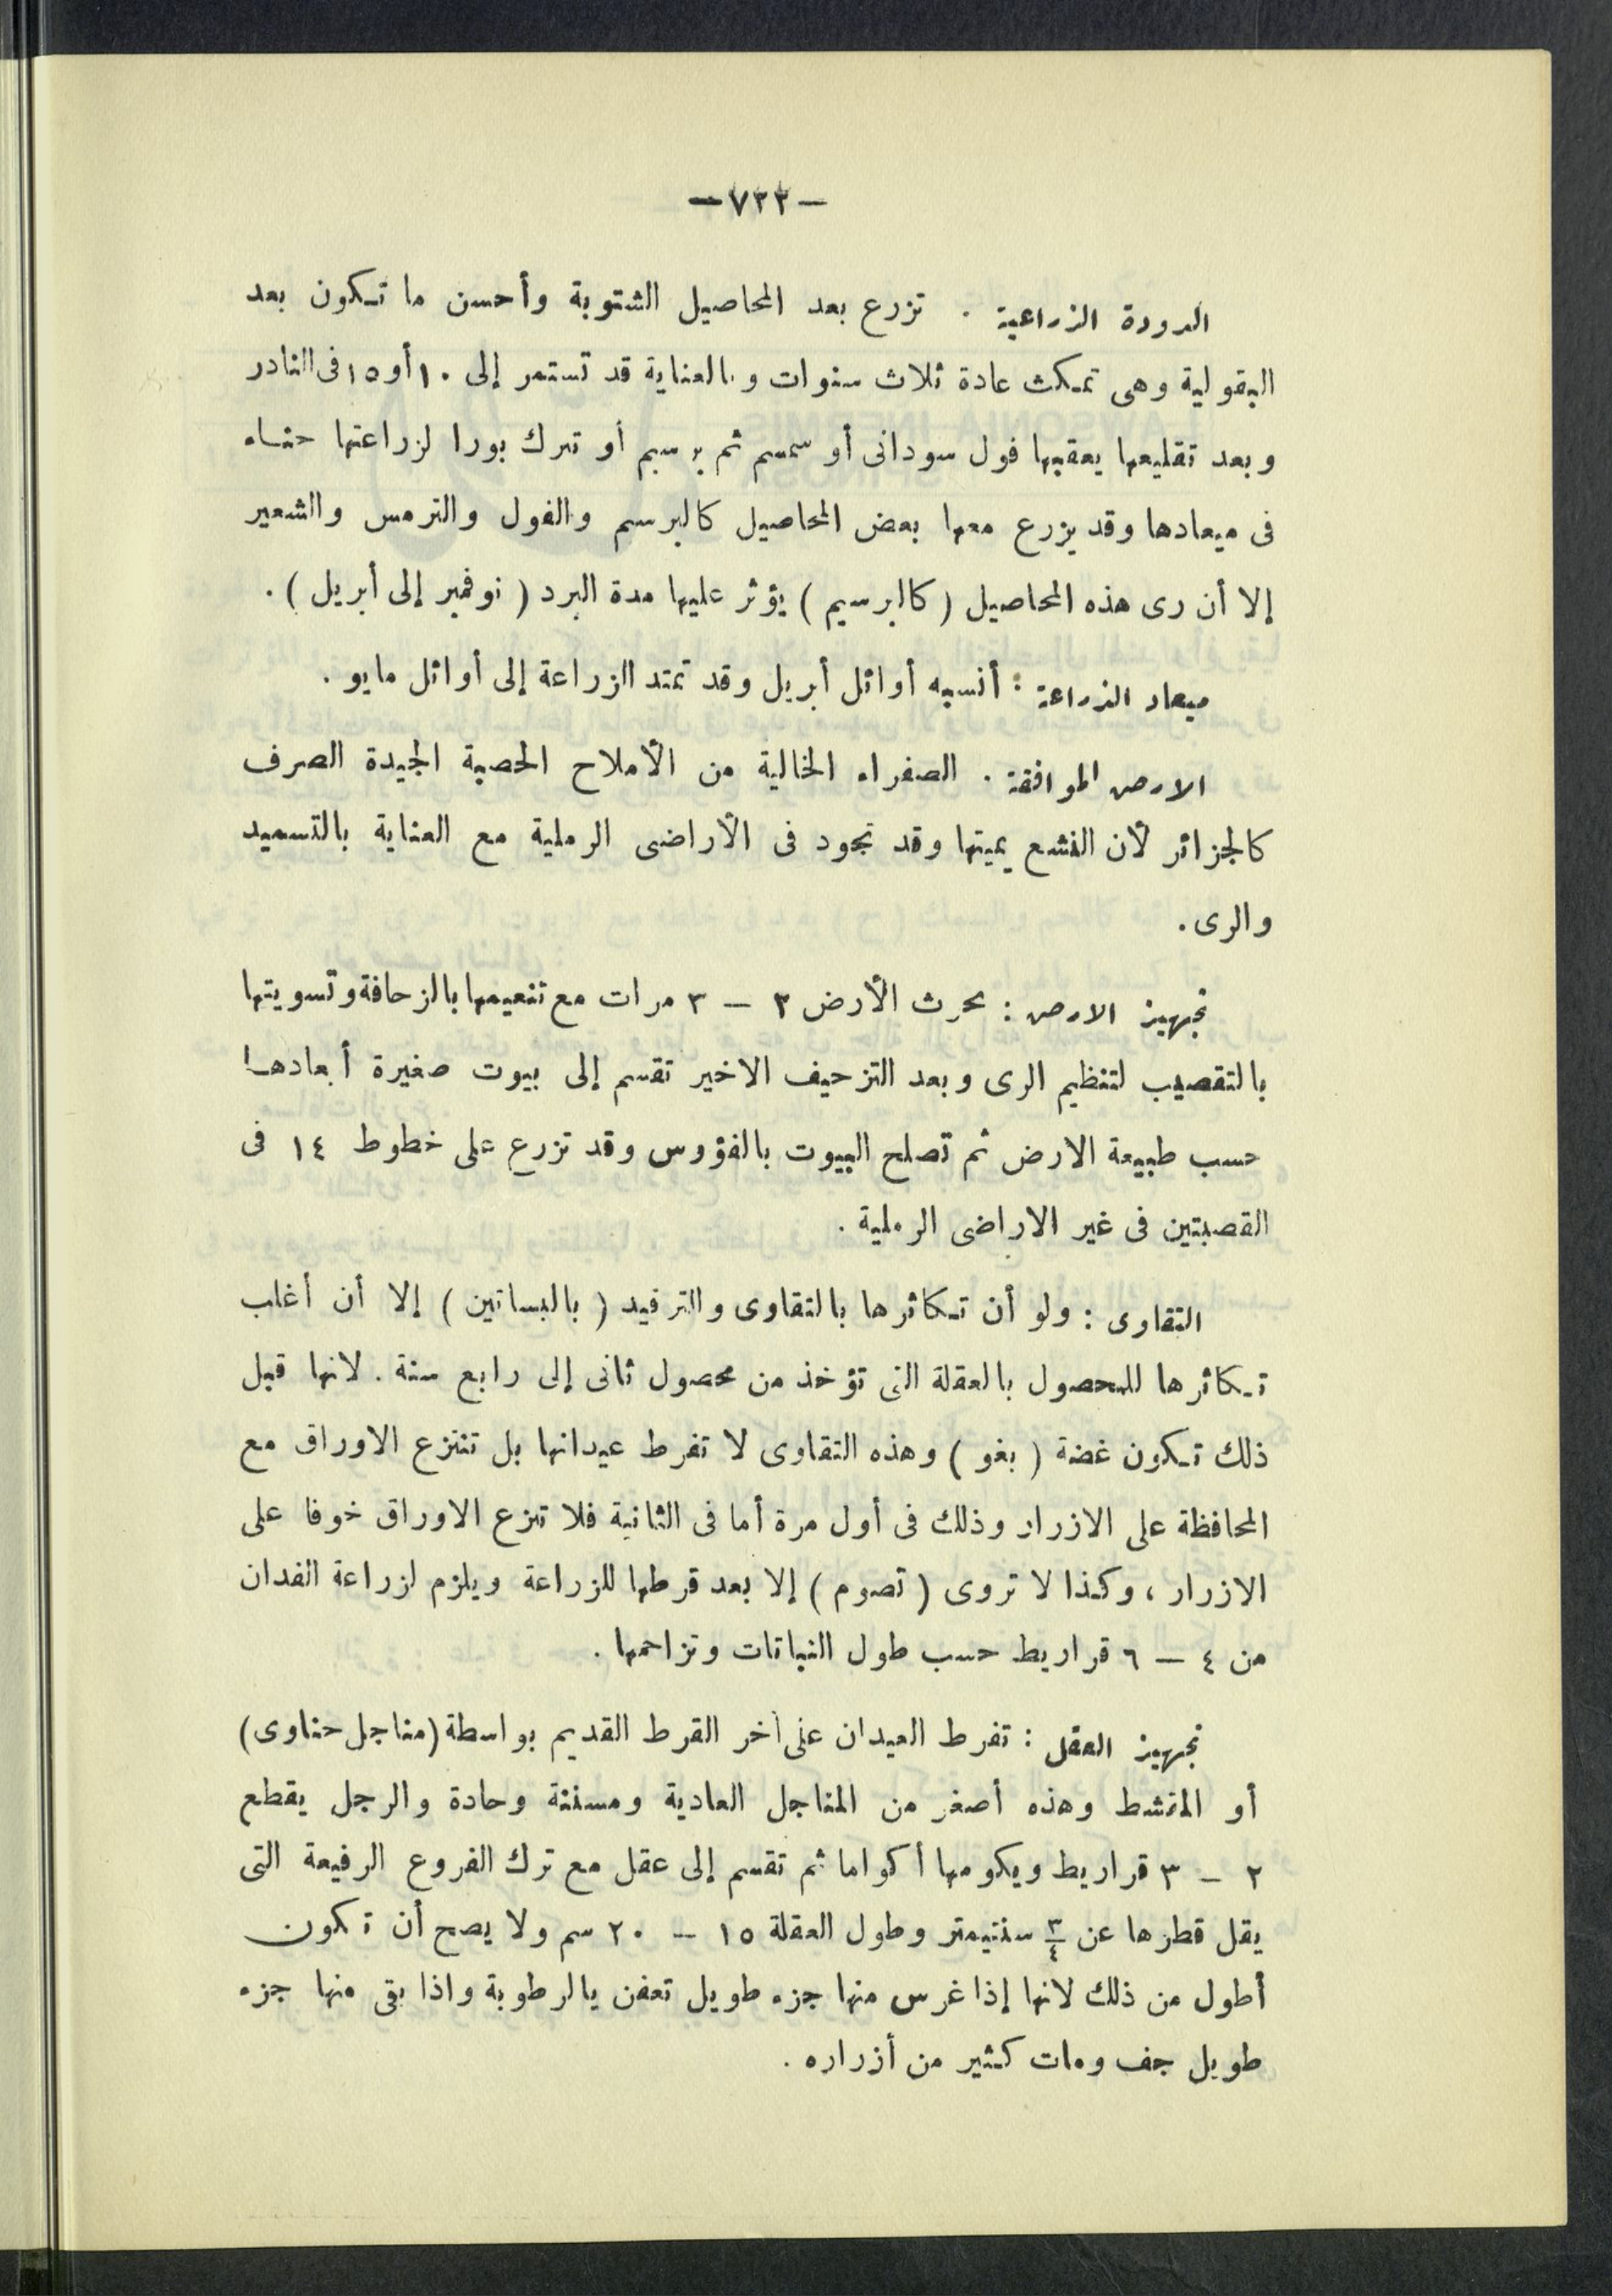 — ٧٣٣ —
الدورة الزراعية . تزرع بعد المحاصيل الشتوية وأحسن ما تكون بعد
البقولية وهى تمكث عادة ثلاث سنوات وبالعناية قد تستمر إلى ١٠ أو ١٥ فى النادر
وبعد تقليعها يعقبها فول سودانى أو سمسم ثم برسيم أو تترك بورا لزراعتها حناء
فى ميعادها وقد يزرع معها بعض المحاصيل كالبرسم والفول والترمس والشعير
إلا أن رى هذه المحاصيل ( كالبرسيم ) يؤثر عليها مدة البرد ( نوفمبر إلى أبريل ) .
ميعاد الزراعة : أنسبه أوائل أبريل وقد تمتد الزراعة إلى أوائل مايو .
الارض الموافقة . الصفراء الخالية من الأملاح الخصبة الجيدة الصرف
كالجزائر لأن النشع يميتها وقد تجود فى الأراضى الرملية مع العناية بالتسميد
والرى .
تجهيز الارض : تحرث الأرض ٢ — ٣ مرات مع تنعيمها بالزحافة وتسويتها
بالتقصيب لتنظيم الرى وبعد التزحيف الاخير تقسم إلى بيوت صغيرة أبعادها
حسب طبيعة الارض ثم تصلح البيوت بالفؤوس وقد تزرع على خطوط ١٤ فى
القصبتين فى غير الاراضى الرملية .
التقاوى : ولو أن تكاثرها بالتقاوى والترفيد ( بالبساتين ) إلا أن أغلب
تكاثرها للمحصول بالعقلة التى تؤخذ من محصول ثانى إلى رابع سنة . لانها قبل
ذلك تكون غضة ( بغو ) وهذه التقاوى لا تفرط عيدانها بل تنتزع الاوراق مع
المحافظة على الازرار وذلك فى أول مرة أما فى الثانية فلا تنزع الاوراق خوفا على
الازرار ، وكذا لا تروى ( تصوم ) إلا بعد قرطها للزراعة ويلزم لزراعة الفدان
من ٤ — ٦ قراريط حسب طول النباتات وتزاحمها .
تجهيز العقل : تفرط العيدان على آخر القرط القديم بواسطة (مناجل حناوى)
أو المنشط وهذه أصغر من المناجل العادية ومسننة وحادة والرجل يقطع
٢ — ٣ قراريط ويكومها أكواما ثم تقسم إلى عقل مع ترك الفروع الرفيعة التى
يقل قطرها عن ٣/٤ سنتيمتر وطول العقلة ١٥ — ٢٠ سم ولا يصح أن تكون
أطول من ذلك لانها إذا غرس منها جزء طويل تعفن بالرطوبة واذا بقى منها جزء
طويل جف ومات كثير من أزراره .